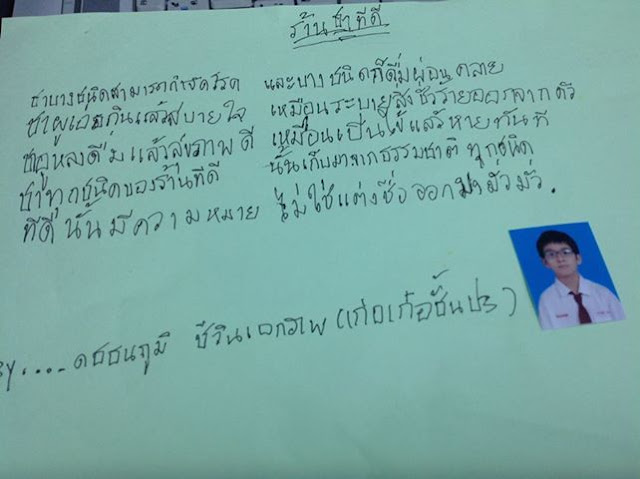 ร้านชาทีดี
ชาบางชนิดสามารถกำจัดโรค และบางชนิดก็ดื่มผ่อนคลาย
ชาผูเอ่อกินแล้วสบายใจ เหมือนระบายสิ่งชั่วร้ายออกจากตัว
ชาอูหลงดื่มแล้วสุขภาพดี เหมือนเป็นไข้แล้วหายทันที
ชาทุกชนิดของร้านทีดี นั้นเก็บมาจากธรรมชาติทุกชนิด
ทีดีนั้นมีความหมาย ไม่ใช่แต่งชื่อออกมามั่วมั่ว.
BY....ดธธนภูมิ (เก่อเก้อชั้นป3)